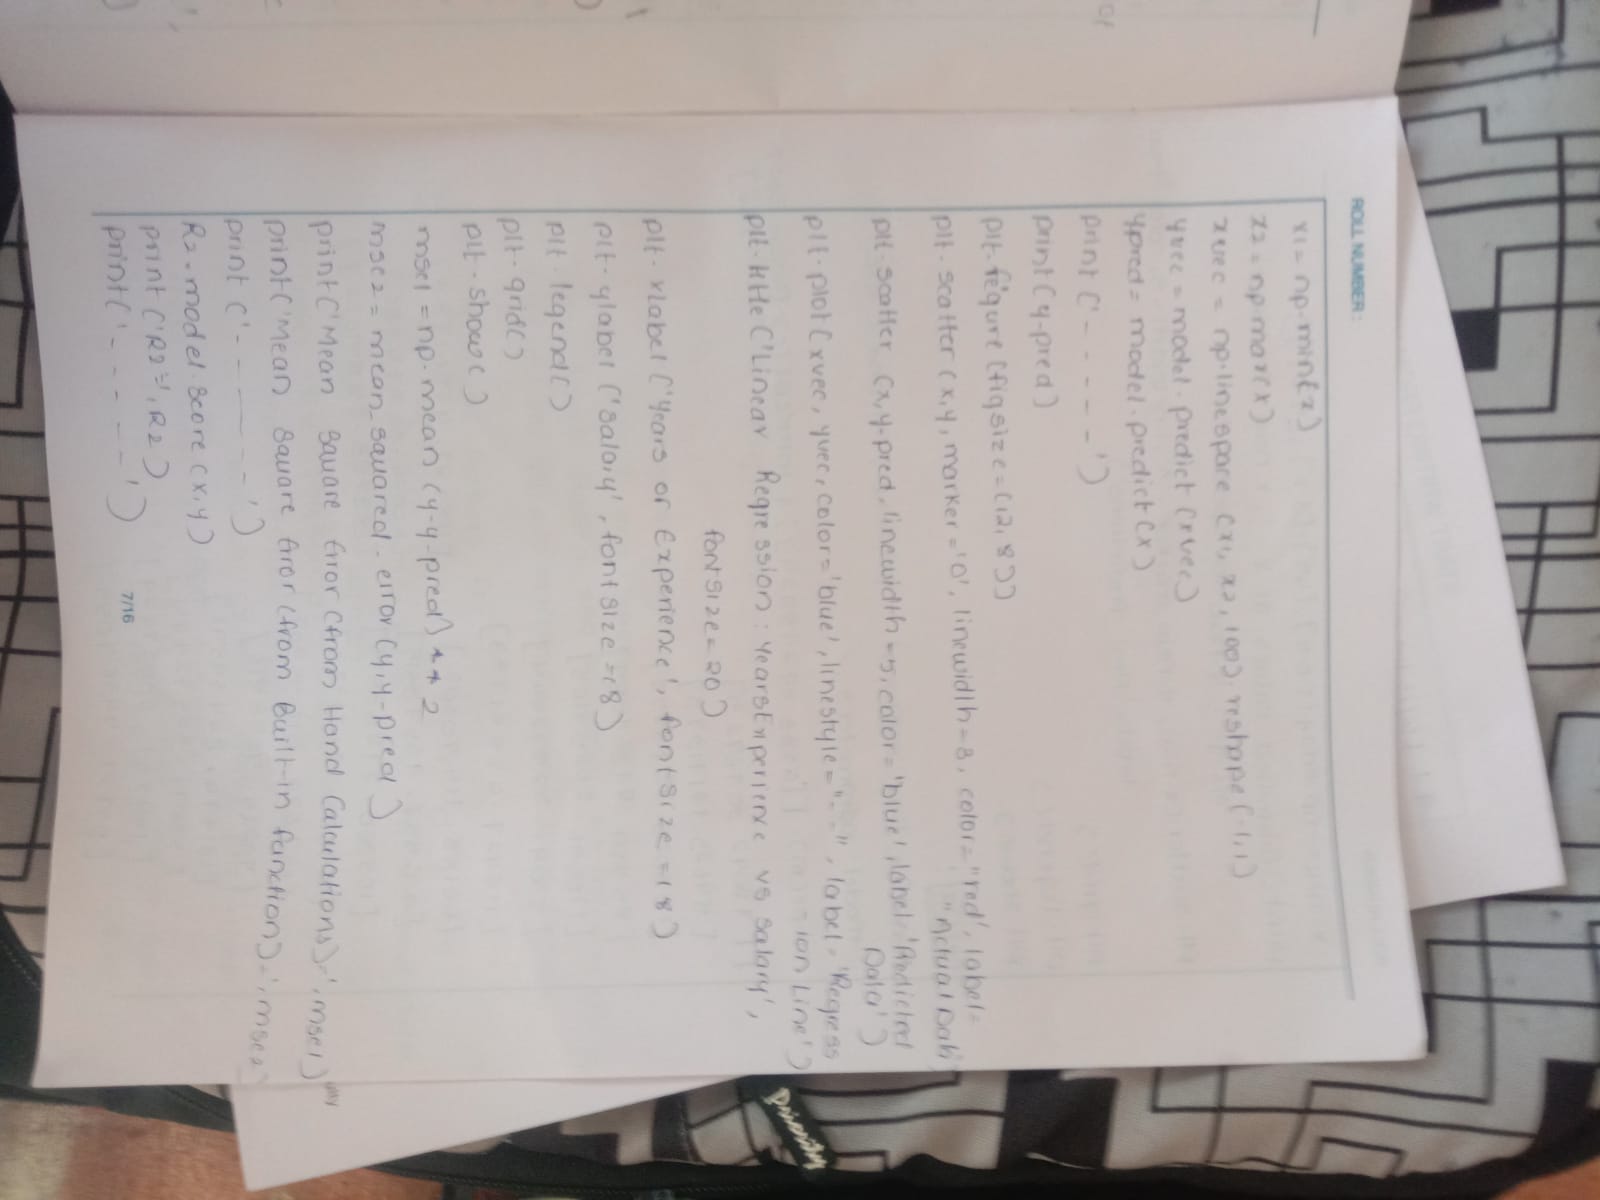 ROLL NUMBER:
x1 = np.min(x)
x2 = np.max(x)
xvec = np.linespare (x1, x2, 100) reshape(-1,1)
yvec = model.predict (xvec)
ypred = model.predict(x)
print ('- - - - -')
print (y-pred)
plt.figure (figsize=(12,8))
plt.scatter (x,y, marker='o', linewidth=3, color="red', label=
"Actual Data
plt.scatter (x,y-pred, linewidth=5, color='blue', label='Predicted
Data')
plt.plot (xvec, yvec, color='blue', linestyle="--", label='Regress
ion Line')
plt.title ('Linear Regression: YearsExperience vs salary',
fontsize=20)
plt.xlabel ('Years or Experience', fontsize=18)
plt.ylabel ('salary', fontsize=18)
plt.legend()
plt.grid()
plt.show()
mse1 = np.mean (y-y-pred)**2
mse2 = mean_squared_error (y,y-pred)
print ('Mean square Error (from Hand Calculations)=', mse1)
print ('Mean square Error (from Built-in function)=', mse2)
print ('- - - - -')
R2 = model score (x,y)
print ('R2=', R2)
print ('- - - - -')
7/16